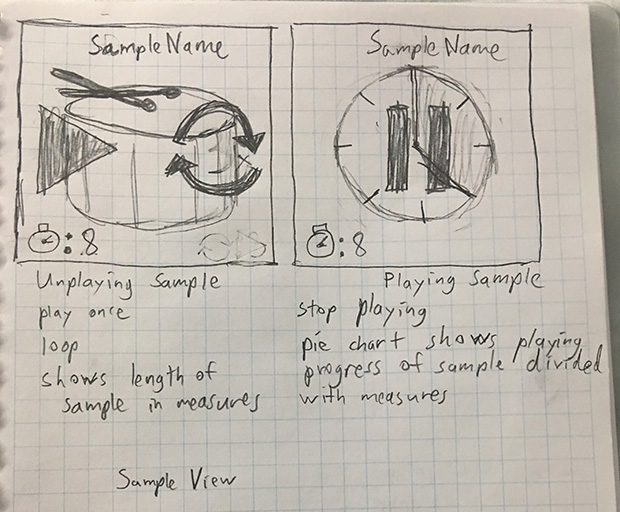 Sample Name
:8
Unplaying Sample
play once
loop
shows length of
sample in measures
Sample Name
:8
Playing Sample
stop playing
pie chart shows playing
progress of sample divided
with measures
Sample View